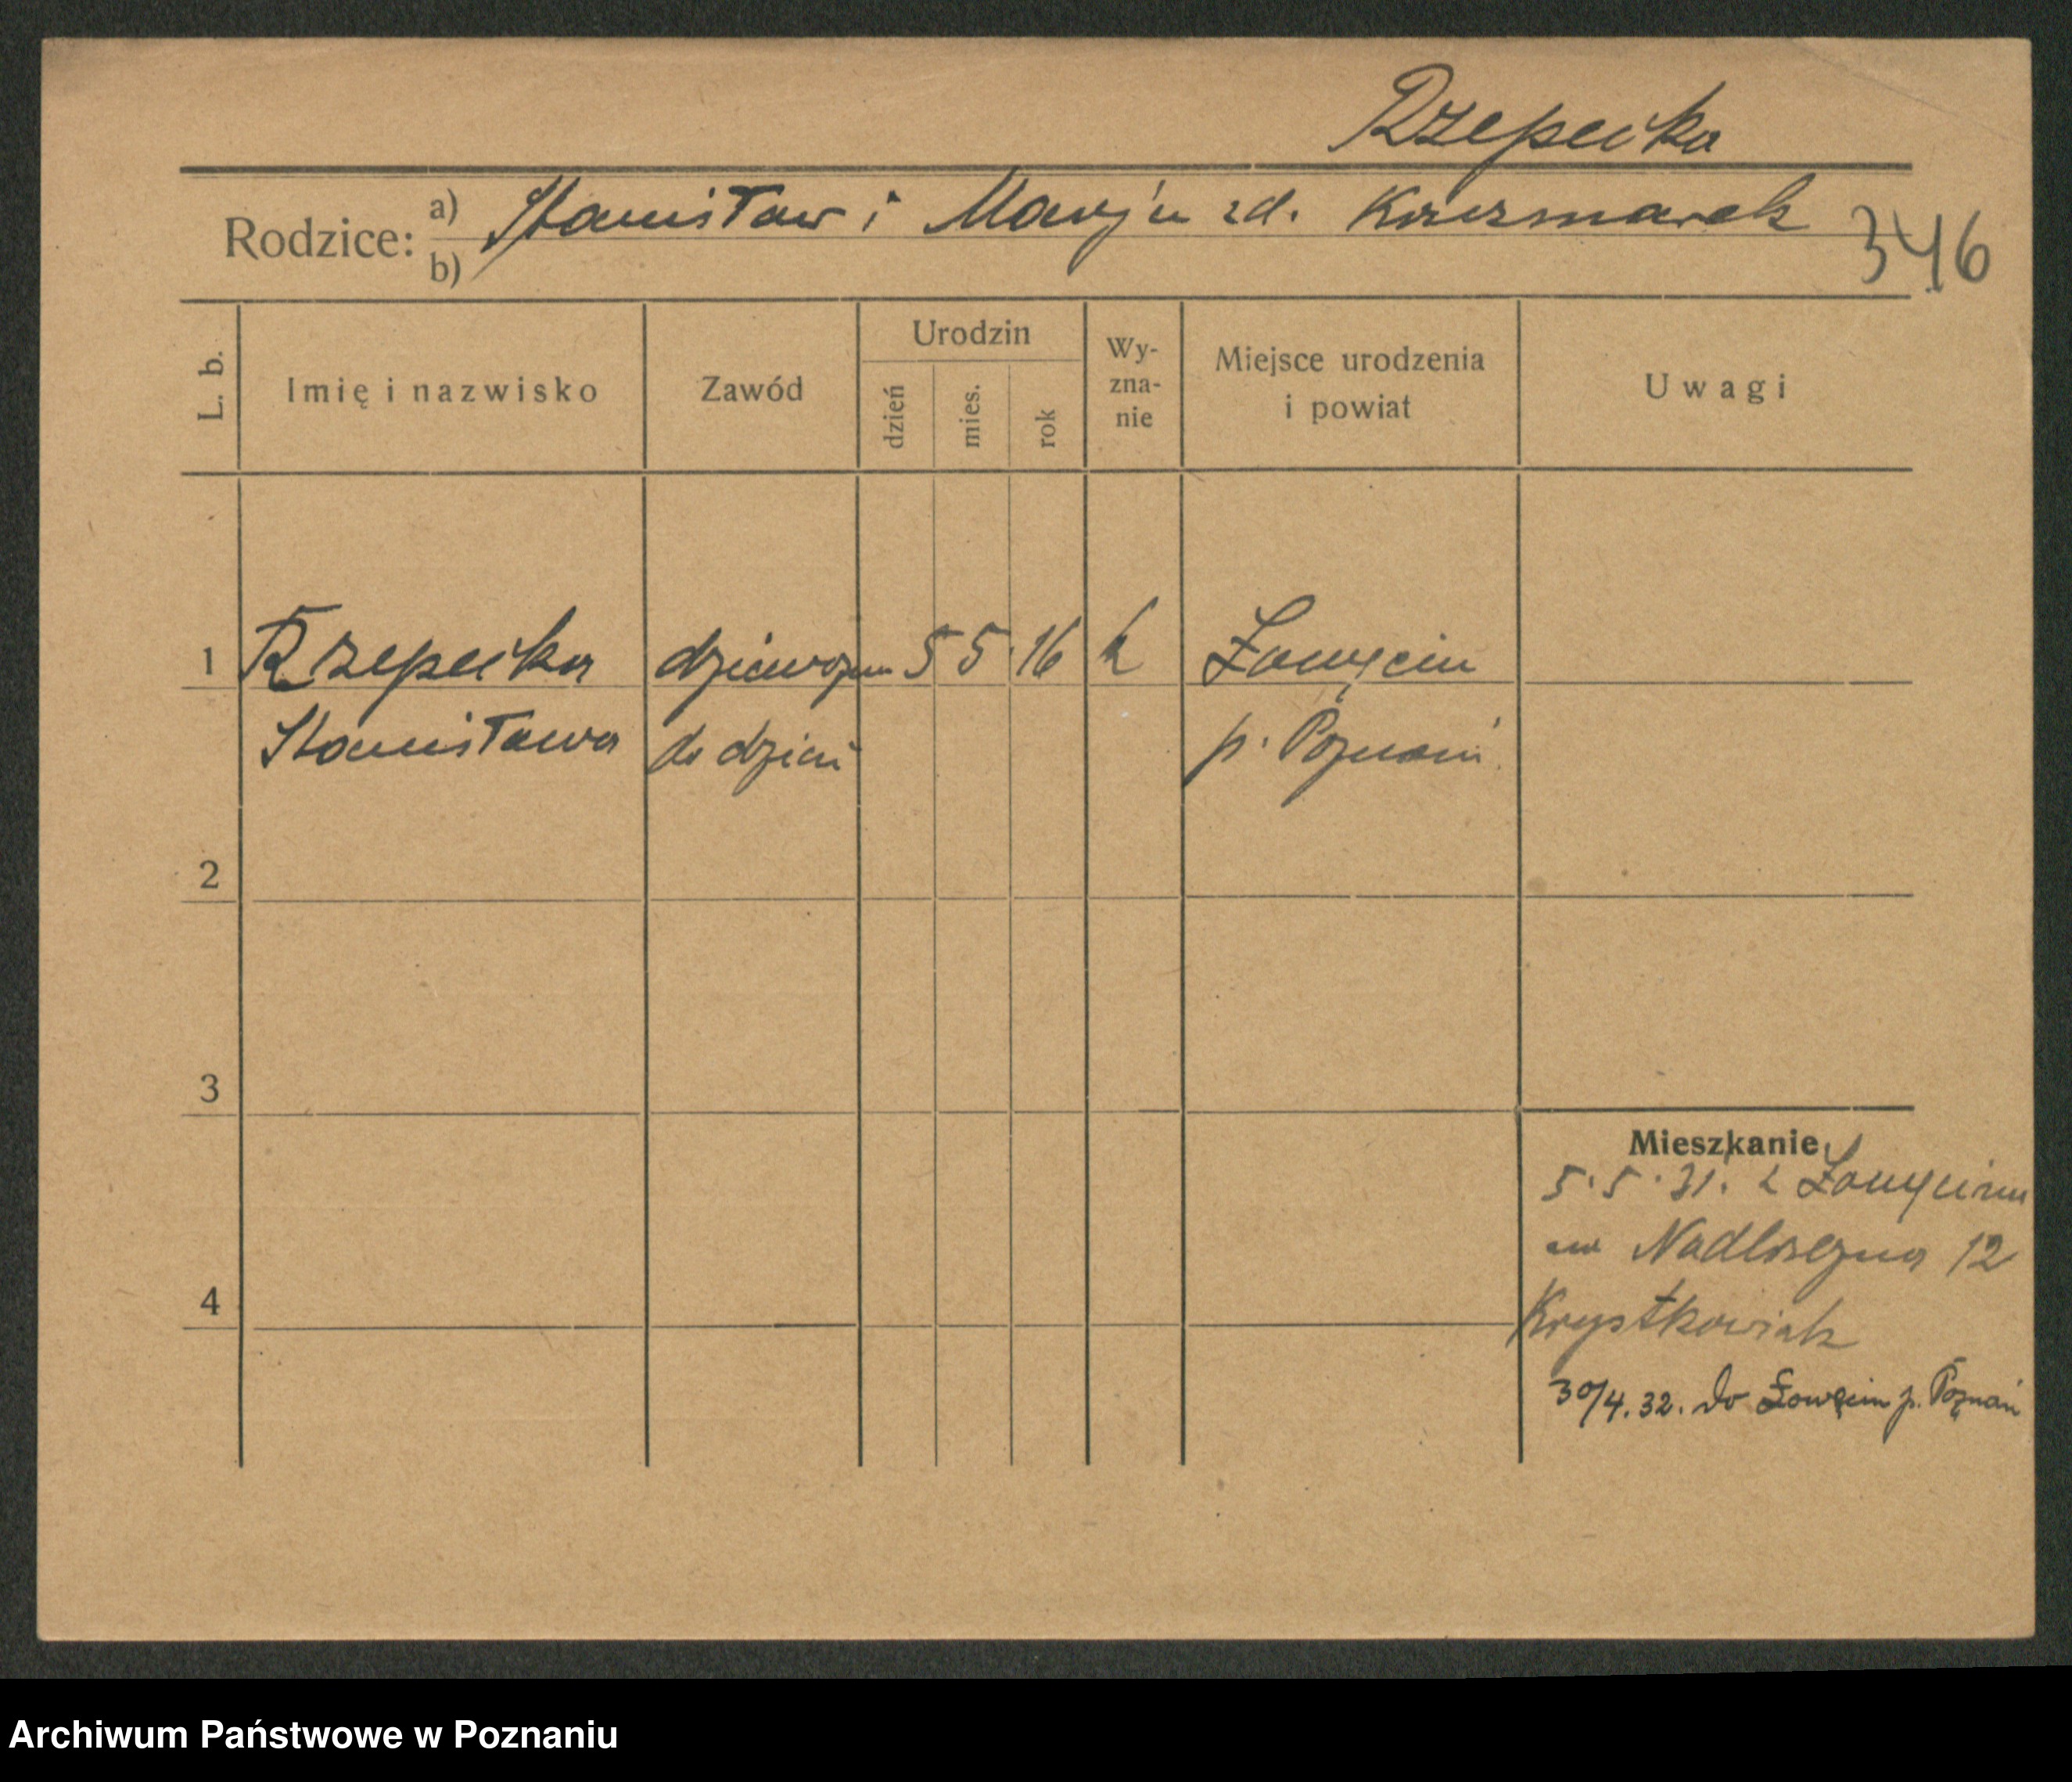 Rzepecka
Rodzice: a) Stanisław i Marja zd. Kaczmarek
b)
346
L. b.
Imię i nazwisko
Zawód
Urodzin
dzień
mies.
rok
Wy-
zna-
nie
Miejsce urodzenia
i powiat
Uwagi
1 Rzepecka dziewczyna 5 5. 16 k Łowęcin
Stanisława do dzieci p. Poznań
2
3
Mieszkanie
5.5.31. z Łowęcina
na Nadbrzeżna 12
4
Krystkowiak
30/4.32. do Łowęcin p. Poznań
Archiwum Państwowe w Poznaniu